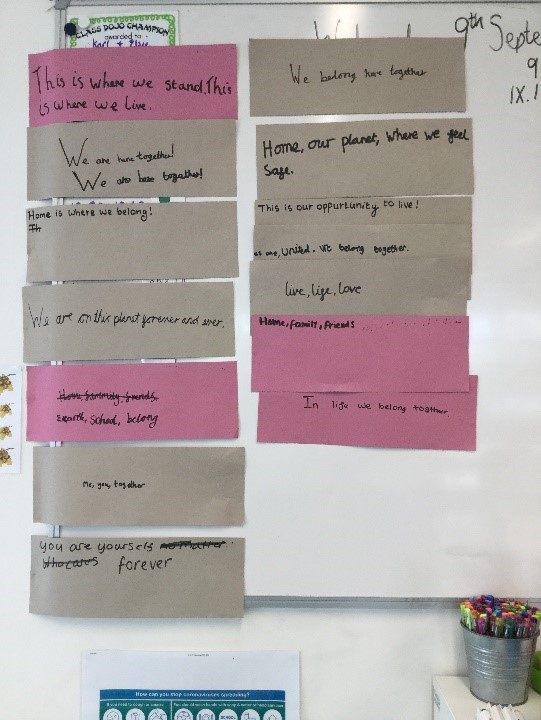 CLASS DOJO CHAMPION
awarded to
9th Septe
9
IX.1
This is where we stand. This
is where we live.
We are here together!
We are here together!
Home is where we belong!
We are on this planet forever and ever.
Home, fammily, freinds.
Earth, School, belong
Me, you, together
you are yourself no matter
who cares forever
We belong here together
Home, our planet, where we feel
Safe.
This is our oppurtunity to live!
as one, United. We belong together.
live, life, love
Home, family, friends
In life we belong together
How can you stop coronavirus spreading?
SCHOOL